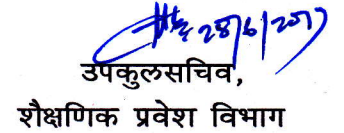 28/6/2017
उपकुलसचिव,
शैक्षणिक प्रवेश विभाग